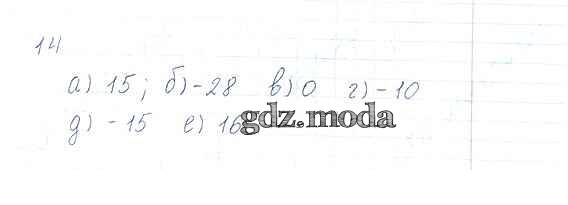 14
а) 15; б) -28 в) 0 г) -10
д) -15 е) 16
gdz.moda